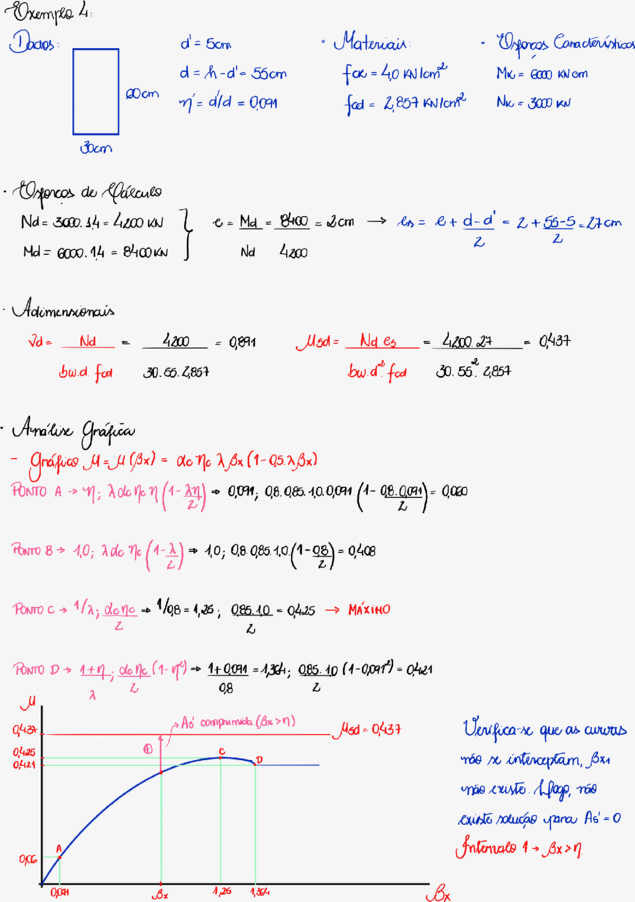 Exemplo 4:
Dados:
60cm
30cm
d' = 5cm
d = h - d' = 55cm
η' = d'/d = 0,091
• Materiais:
fck = 4,0 KN/cm²
fcd = 2,857 KN/cm²
• Esforços Característicos
Mk = 6000 KNcm
Nk = 3000 KN
• Esforços de Cálculo
Nd = 3000.1,4 = 4200 KN
Md = 6000.1,4 = 8400 KN
e = Md/Nd = 8400/4200 = 2cm → es = e + (d-d')/2 = 2 + (55-5)/2 = 27cm
• Adimensionais
νd = Nd/(bw.d fcd) = 4200/(30.55.2,857) = 0,891
μsd = Nd es/(bw.d² fcd) = 4200.27/(30.55².2,857) = 0,437
• Análise Gráfica
- Gráfico μ = μ(βx) = αc ηc λ βx (1-0,5.λβx)
PONTO A → η; λ αc ηc η (1-λη/2) → 0,091; 0,8.0,85.1,0.0,091 (1-0,8.0,091/2) = 0,060
PONTO B → 1,0; λ αc ηc (1-λ/2) → 1,0; 0,8.0,85.1,0.(1-0,8/2) = 0,408
PONTO C → 1/λ; αc ηc/2 → 1/0,8 = 1,25; 0,85.1,0/2 = 0,425 → MÁXIMO
PONTO D → (1+η)/λ; αc ηc/2 (1-η²) → (1+0,091)/0,8 = 1,364; 0,85.1,0/2 (1-0,091²) = 0,421
μ
0,437
0,425
0,421
0,06
A
⊕
As' comprimida (βx>η)
C
D
μsd = 0,437
0,091
βx
1,25
1,364
βx
Verifica-se que as curvas
não se interceptam, βx1
não existe. Logo, não
existe solução para As' = 0
Intervalo 1 → βx>η